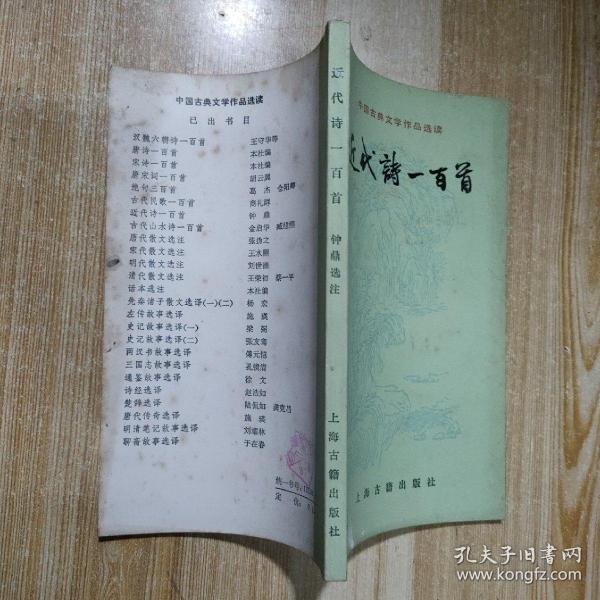 中国古典文学作品选读
已出书目
汉魏六朝诗一百首 王守华等
唐诗一百首 本社编
宋诗一百首 本社编
唐宋词一百首 胡云翼
绝句三百首 葛杰 仓阳卿
古代民歌一百首 商礼群
近代诗一百首 钟鼎
古代山水诗一百首 金启华 臧维熙
唐代散文选注 张㧑之
宋代散文选注 王水照
明代散文选注 刘世德
清代散文选注 王荣初 蔡一平
话本选注 本社编
先秦诸子散文选译(一)(二) 杨宏
左传故事选译 施瑛
史记故事选译(一) 梁弼
史记故事选译(二) 张友鸾
两汉书故事选译 傅元恺
三国志故事选译 孔镜清
通鉴故事选译 徐文
诗经选译 赵浩如
楚辞选译 陆侃如 龚克昌
唐代传奇选译 施瑛
明清笔记故事选译 刘耀林
聊斋故事选译 于在春
统一书号:
定价:
近代诗一百首 钟鼎选注 上海古籍出版社
中国古典文学作品选读
近代诗一百首
上海古籍出版社
孔夫子旧书网
www.kongfz.com